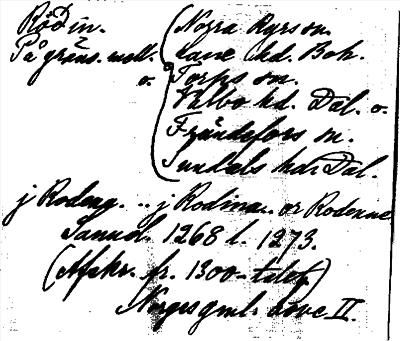 Rödån.
På gräns. mell.
o.
Norra Ryrs sn.
Lane hd. Boh.
Torps sn.
Valbo hd. Dal. o.
Frändefors sn.
Sundals hd. Dal.
j Rodeng. .. j Rodina.. or Rodenne
Sannd. 1268 l. 1273.
(Afskr. fr. 1300-talet)
Norges gml. love II.